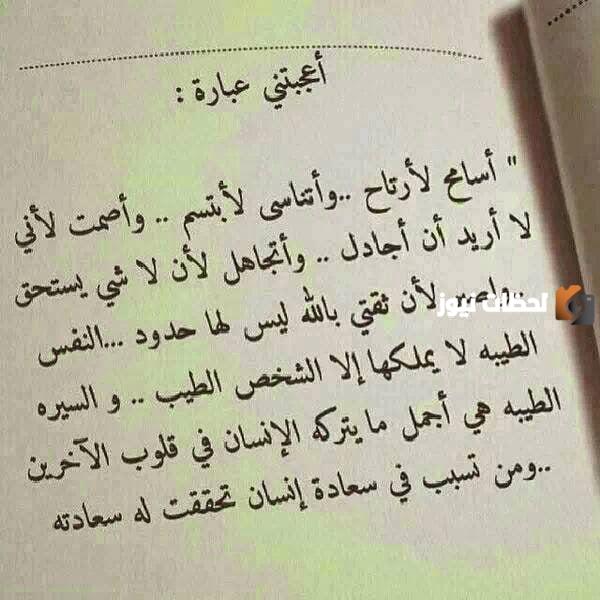 أعجبتني عبارة :
" أسامح لأرتاح ..وأتناسى لأبتسم .. وأصمت لأني
لا أريد أن أجادل .. وأتجاهل لأن لا شي يستحق
لأن ثقتي بالله ليس لها حدود ...النفس
لحظات نيوز
الطيبه لا يملكها إلا الشخص الطيب .. و السيره
الطيبه هي أجمل ما يتركه الإنسان في قلوب الآخرين
..ومن تسبب في سعادة إنسان تحققت له سعادته